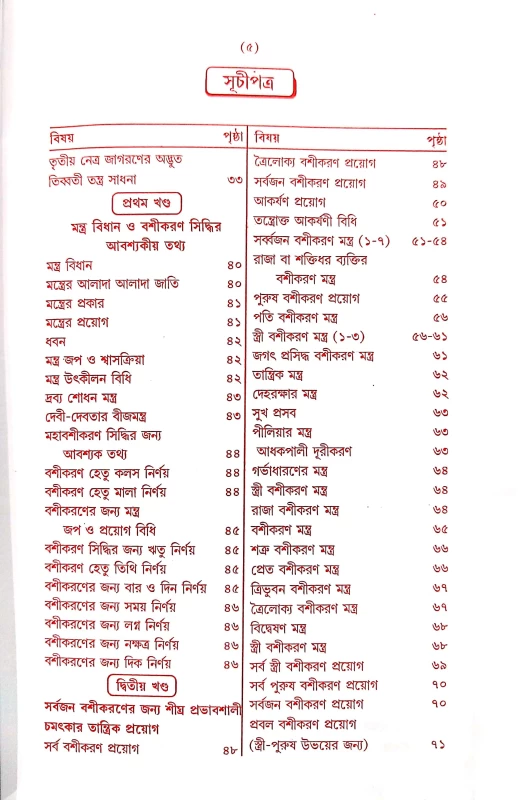 (৫)
সূচীপত্র
বিষয় পৃষ্ঠা
তৃতীয় নেত্র জাগরণের অদ্ভুত
তিব্বতী তন্ত্র সাধনা ৩৩
প্রথম খণ্ড
মন্ত্র বিধান ও বশীকরণ সিদ্ধির
আবশ্যকীয় তথ্য
মন্ত্র বিধান ৪০
মন্ত্রের আলাদা আলাদা জাতি ৪০
মন্ত্রের প্রকার ৪১
মন্ত্রের প্রয়োগ ৪১
ধবন ৪২
মন্ত্র জপ ও শ্বাসক্রিয়া ৪২
মন্ত্র উৎকীলন বিধি ৪২
দ্রব্য শোধন মন্ত্র ৪৩
দেবী-দেবতার বীজমন্ত্র ৪৩
মহাবশীকরণ সিদ্ধির জন্য
আবশ্যক তথ্য ৪৪
বশীকরণ হেতু কলস নির্ণয় ৪৪
বশীকরণ হেতু মালা নির্ণয় ৪৪
বশীকরণের জন্য মন্ত্র
জপ ও প্রয়োগ বিধি ৪৫
বশীকরণ সিদ্ধির জন্য ঋতু নির্ণয় ৪৫
বশীকরণ হেতু তিথি নির্ণয় ৪৫
বশীকরণের জন্য বার ও দিন নির্ণয় ৪৫
বশীকরণের জন্য সময় নির্ণয় ৪৬
বশীকরণের জন্য লগ্ন নির্ণয় ৪৬
বশীকরণের জন্য নক্ষত্র নির্ণয় ৪৬
বশীকরণের জন্য দিক নির্ণয় ৪৬
দ্বিতীয় খণ্ড
সর্বজন বশীকরণের জন্য শীঘ্র প্রভাবশালী
চমৎকার তান্ত্রিক প্রয়োগ
সর্ব বশীকরণ প্রয়োগ ৪৮
বিষয় পৃষ্ঠা
ত্রৈলোক্য বশীকরণ প্রয়োগ ৪৮
সর্বজন বশীকরণ প্রয়োগ ৪৯
আকর্ষণ প্রয়োগ ৫০
তন্ত্রোক্ত আকর্ষণী বিধি ৫১
সর্ব্বজন বশীকরণ মন্ত্র (১-৭) ৫১-৫৪
রাজা বা শক্তিধর ব্যক্তির
বশীকরণ মন্ত্র ৫৪
পুরুষ বশীকরণ প্রয়োগ ৫৫
পতি বশীকরণ মন্ত্র ৫৬
স্ত্রী বশীকরণ মন্ত্র (১-৩) ৫৬-৬১
জগৎ প্রসিদ্ধ বশীকরণ মন্ত্র ৬১
তান্ত্রিক মন্ত্র ৬২
দেহরক্ষার মন্ত্র ৬২
সুখ প্রসব ৬৩
পীলিয়ার মন্ত্র ৬৩
আধকপালী দূরীকরণ ৬৩
গর্ভাধারণের মন্ত্র ৬৪
স্ত্রী বশীকরণ মন্ত্র ৬৪
রাজা বশীকরণ মন্ত্র ৬৪
বশীকরণ মন্ত্র ৬৫
শত্রু বশীকরণ মন্ত্র ৬৬
প্রেত বশীকরণ মন্ত্র ৬৬
ত্রিভুবন বশীকরণ মন্ত্র ৬৭
ত্রৈলোক্য বশীকরণ মন্ত্র ৬৭
বিদ্বেষণ মন্ত্র ৬৮
স্ত্রী বশীকরণ মন্ত্র ৬৮
সর্ব স্ত্রী বশীকরণ প্রয়োগ ৬৯
সর্ব পুরুষ বশীকরণ প্রয়োগ ৭০
সর্বজন বশীকরণ প্রয়োগ ৭০
প্রবল বশীকরণ প্রয়োগ
(স্ত্রী-পুরুষ উভয়ের জন্য) ৭১